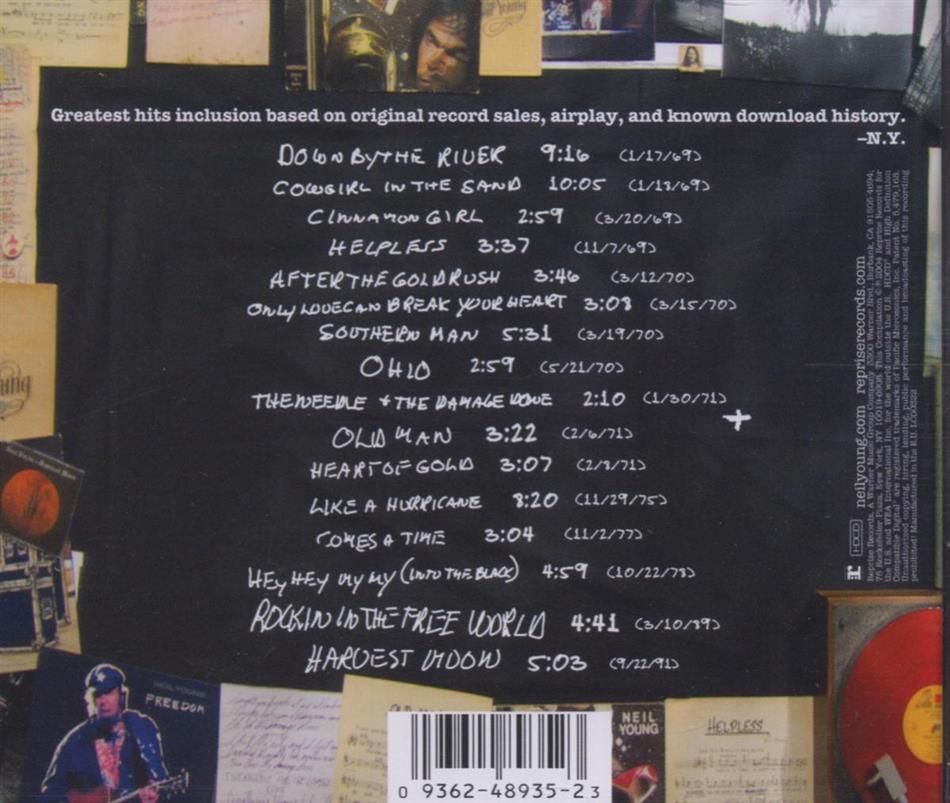 Greatest hits inclusion based on original record sales, airplay, and known download history.
–N.Y.
DOWN BY THE RIVER 9:16 (1/17/69)
COWGIRL IN THE SAND 10:05 (1/18/69)
CINNAMON GIRL 2:59 (3/20/69)
HELPLESS 3:37 (11/7/69)
AFTER THE GOLD RUSH 3:46 (3/12/70)
ONLY LOVE CAN BREAK YOUR HEART 3:08 (3/15/70)
SOUTHERN MAN 5:31 (3/19/70)
OHIO 2:59 (5/21/70)
THE NEEDLE + THE DAMAGE DONE 2:10 (1/30/71)
+
OLD MAN 3:22 (2/6/71)
HEART OF GOLD 3:07 (2/8/71)
LIKE A HURRICANE 8:20 (11/29/75)
COMES A TIME 3:04 (11/2/77)
HEY HEY MY MY (INTO THE BLACK) 4:59 (10/22/78)
ROCKIN IN THE FREE WORLD 4:41 (3/10/89)
HARVEST MOON 5:03 (9/22/91)
neilyoung.com repriserecords.com
HDCD
Reprise Records, A Warner Music Group Company, 3300 Warner Blvd., Burbank, CA 91505-4694;
75 Rockefeller Plaza, New York, NY 10019-6908. This Compilation © ℗ 2004 Reprise Records for
the U.S. and WEA International Inc. for the world outside the U.S. HDCD® and High Definition
Compatible Digital® are registered trademarks of Pacific Microsonics, Inc. Patent No. 5,479,168.
Unauthorized copying, hiring, lending, public performance and broadcasting of this recording
prohibited! Manufactured in the E.U.
NEIL YOUNG
FREEDOM
NEIL
YOUNG
HELPLESS
0 9362-48935-2 3